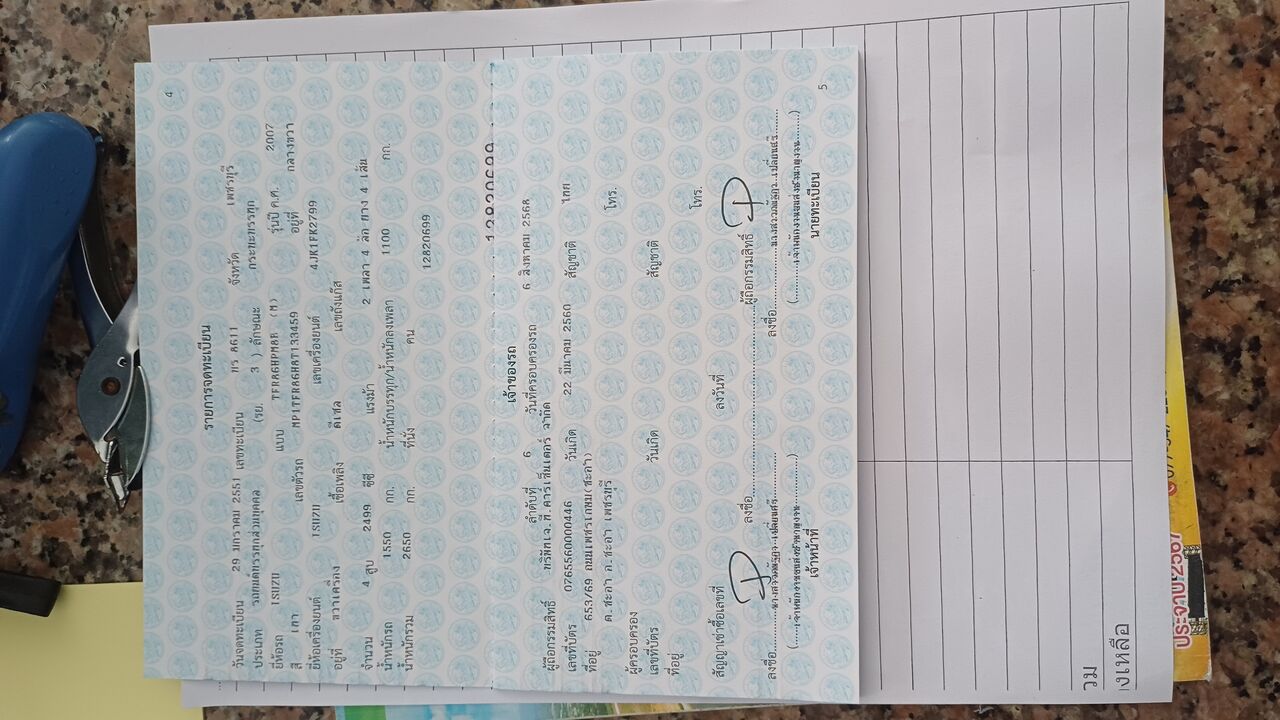 4
รายการจดทะเบียน
วันจดทะเบียน 29 มกราคม 2551 เลขทะเบียน 8611 จังหวัด เพชรบุรี
ประเภท รถยนต์บรรทุกส่วนบุคคล (รย. 3 ) ลักษณะ กระบะบรรทุก
ยี่ห้อรถ ISUZU แบบ TFRA6HPM8R (M) รุ่นปี ค.ศ. 2007
สี เทา เลขตัวรถ MP1TFRA6H8T133459 อยู่ที่ กลางขวา
ยี่ห้อเครื่องยนต์ ISUZU เลขเครื่องยนต์ 4JK1FK2799
อยู่ที่ ขวาเครื่อง เชื้อเพลิง ดีเซล เลขถังแก๊ส
จำนวน 4 สูบ 2499 ซีซี แรงม้า 2 เพลา 4 ล้อ ยาง 4 เส้น
น้ำหนักรถ 1550 กก. น้ำหนักบรรทุก/น้ำหนักลงเพลา 1100 กก.
น้ำหนักรวม 2650 กก. ที่นั่ง คน
12820699
12820699
เจ้าของรถ
ลำดับที่ 6 วันที่ครอบครองรถ 6 สิงหาคม 2568
ผู้ถือกรรมสิทธิ์ บริษัทเจ.ที.คาร์เซ็นเตอร์ จำกัด
เลขที่บัตร 0765560000446 วันเกิด 22 มีนาคม 2560 สัญชาติ ไทย
ที่อยู่ 653/69 ถนนเพชรเกษม(ชะอำ)
ต.ชะอำ อ.ชะอำ เพชรบุรี โทร.
ผู้ครอบครอง
เลขที่บัตร วันเกิด สัญชาติ
ที่อยู่ โทร.
สัญญาเช่าซื้อเลขที่ ลงวันที่
ลงชื่อ ผู้ถือกรรมสิทธิ์
ลงชื่อ ลงชื่อ
เจ้าหน้าที่ นายทะเบียน
5
ประจำปี 2567
วม
งเหลือ